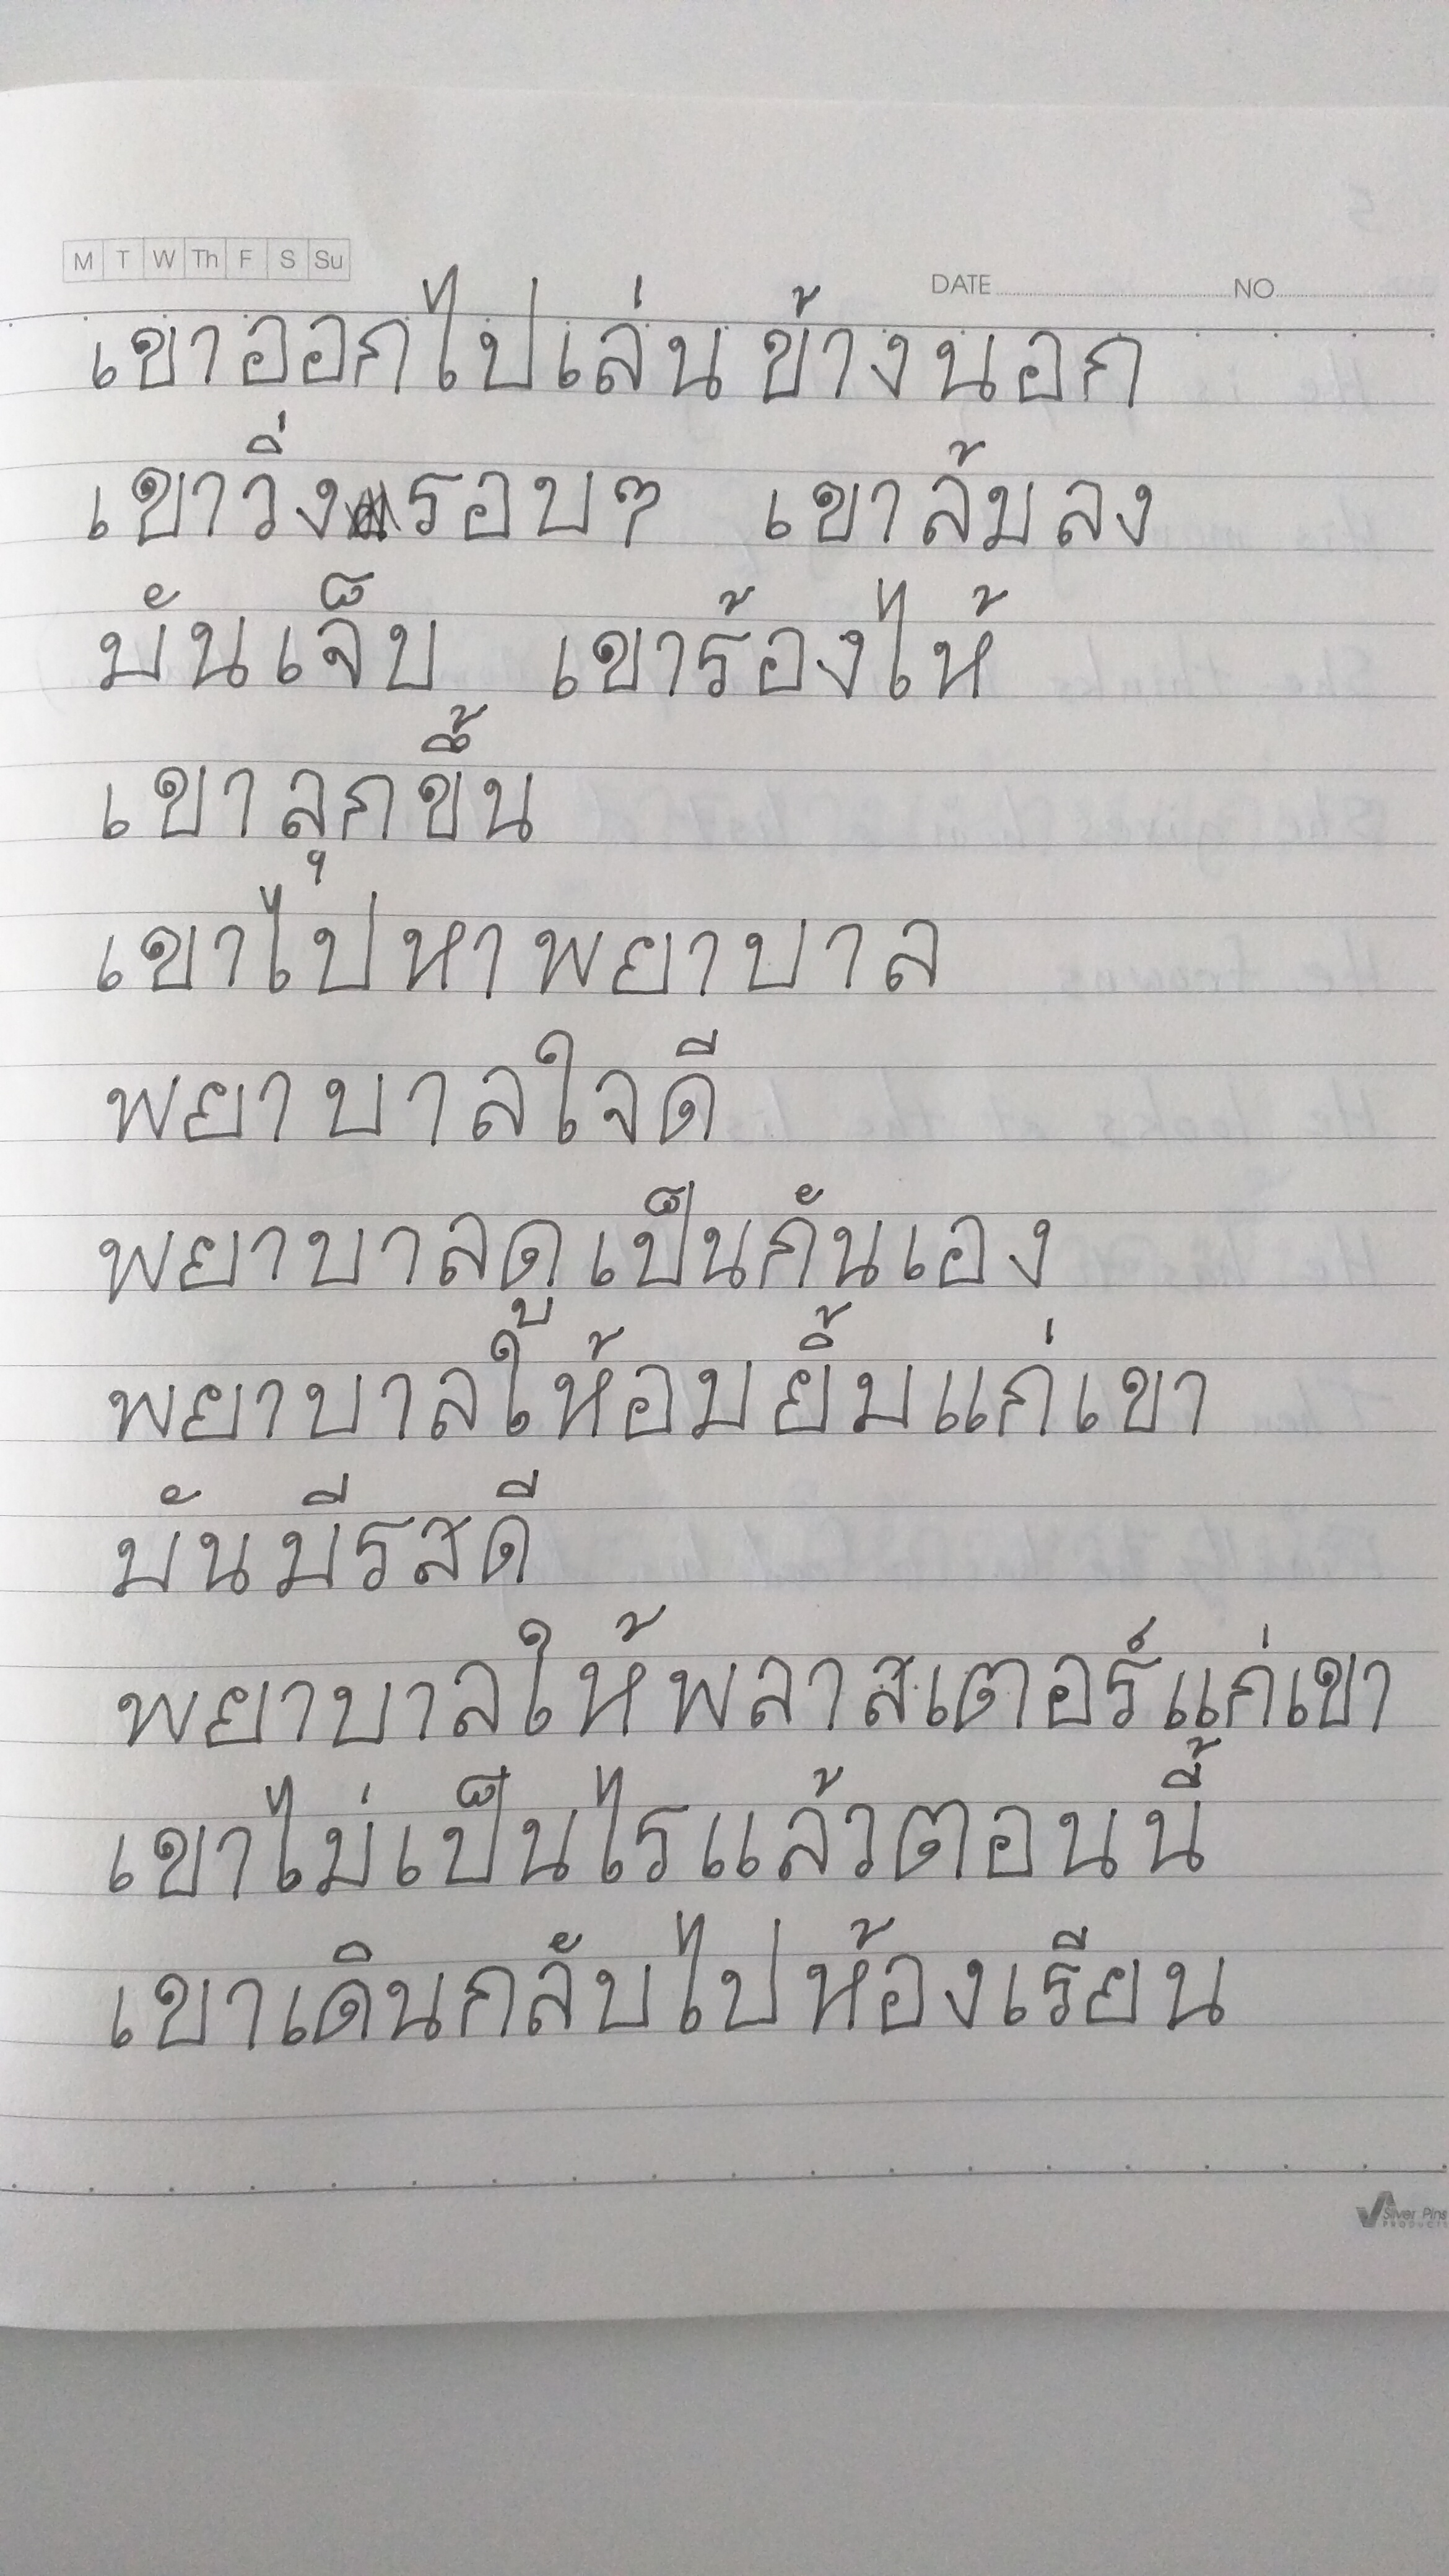 M T W Th F S Su
DATE NO
เขาออกไปเล่นข้างนอก
เขาวิ่งรอบๆ เขาล้มลง
มันเจ็บ เขาร้องไห้
เขาลุกขึ้น
เขาไปหาพยาบาล
พยาบาลใจดี
พยาบาลดูเป็นกันเอง
พยาบาลให้อมยิ้มแก่เขา
มันมีรสดี
พยาบาลให้พลาสเตอร์แก่เขา
เขาไม่เป็นไรแล้วตอนนี้
เขาเดินกลับไปห้องเรียน
Silver Pins